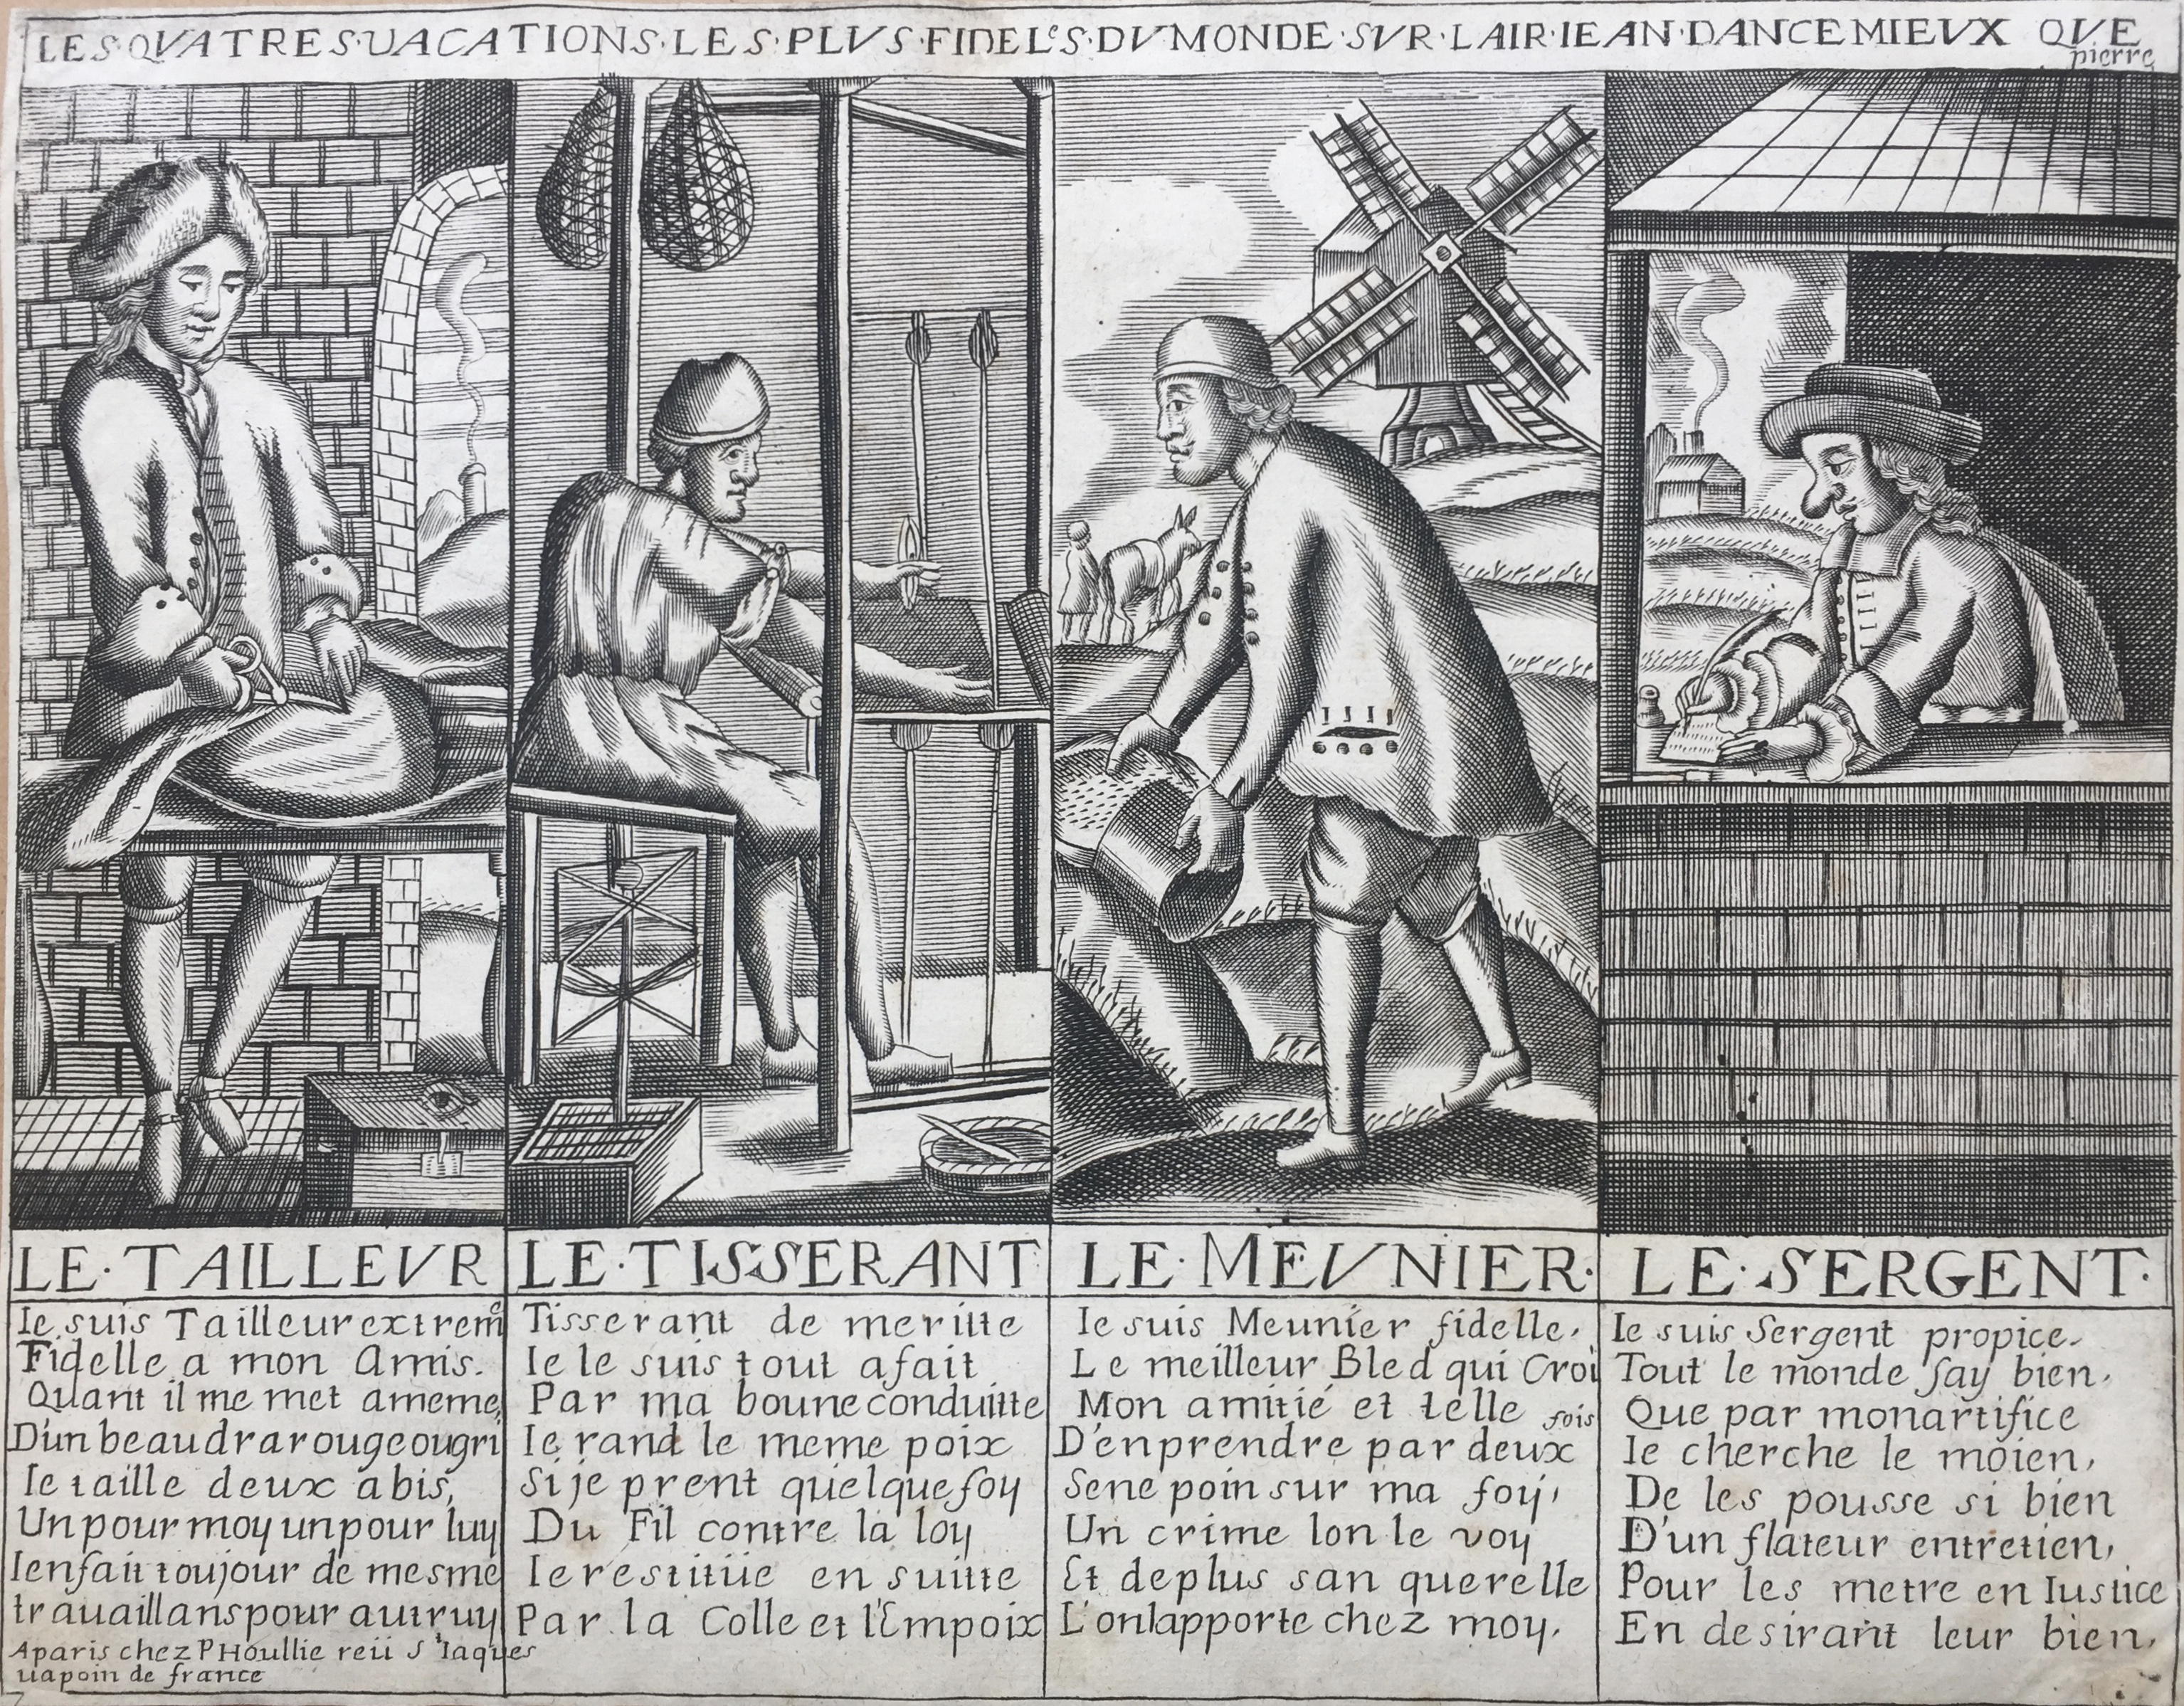 LES·QVATRES·UACATIONS·LES·PLVS·FIDELes·DV·MONDE·SVR·LAIR·IEAN·DANCE MIEVX QVE
pierre
LE·TAILLEVR
Ie suis Tailleur extreme
Fidelle a mon Amis.
Quant il me met ameme,
D'un beau dra rouge ou gri
Ie taille deux abis,
Un pour moy un pour luy
Ien fait toujour de mesme
trauaillans pour autruy
Aparis chez P Houllie reü St Iaques
uapoin de france
LE·TISSERANT
Tisserant de meritte
Ie le suis tout afait
Par ma boune conduitte
Ie rand le meme poix
Si je prent quelque foy
Du Fil contre la loy
Ie restitüe en suitte
Par la Colle et l'Empoix
LE·MEVNIER·
Ie suis Meunier fidelle,
Le meilleur Bled qui Croi
Mon amitié et telle
D'en prendre par deux fois
Sene poin sur ma foy,
Un crime lon le voy
Et deplus san querelle
L'on lapporte chez moy,
LE·SERGENT·
Ie suis Sergent propice.
Tout le monde say bien,
Que par mon artifice
Ie cherche le moien,
De les pousse si bien
D'un flateur entretien,
Pour les metre en Iustice
En desirant leur bien,